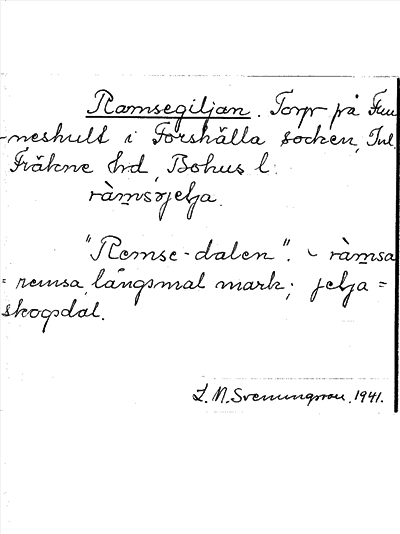 Ramsegiljan. Torp på Fun
-neshult i Forshälla socken, Inl.
Fräkne hd, Bohus l.
ràm̲sɘjelja.
"Remse-dalen". ~ ràm̲sa
= remsa, långsmal mark; jelja =
skogsdal.
L. N. Svenungsson. 1941.